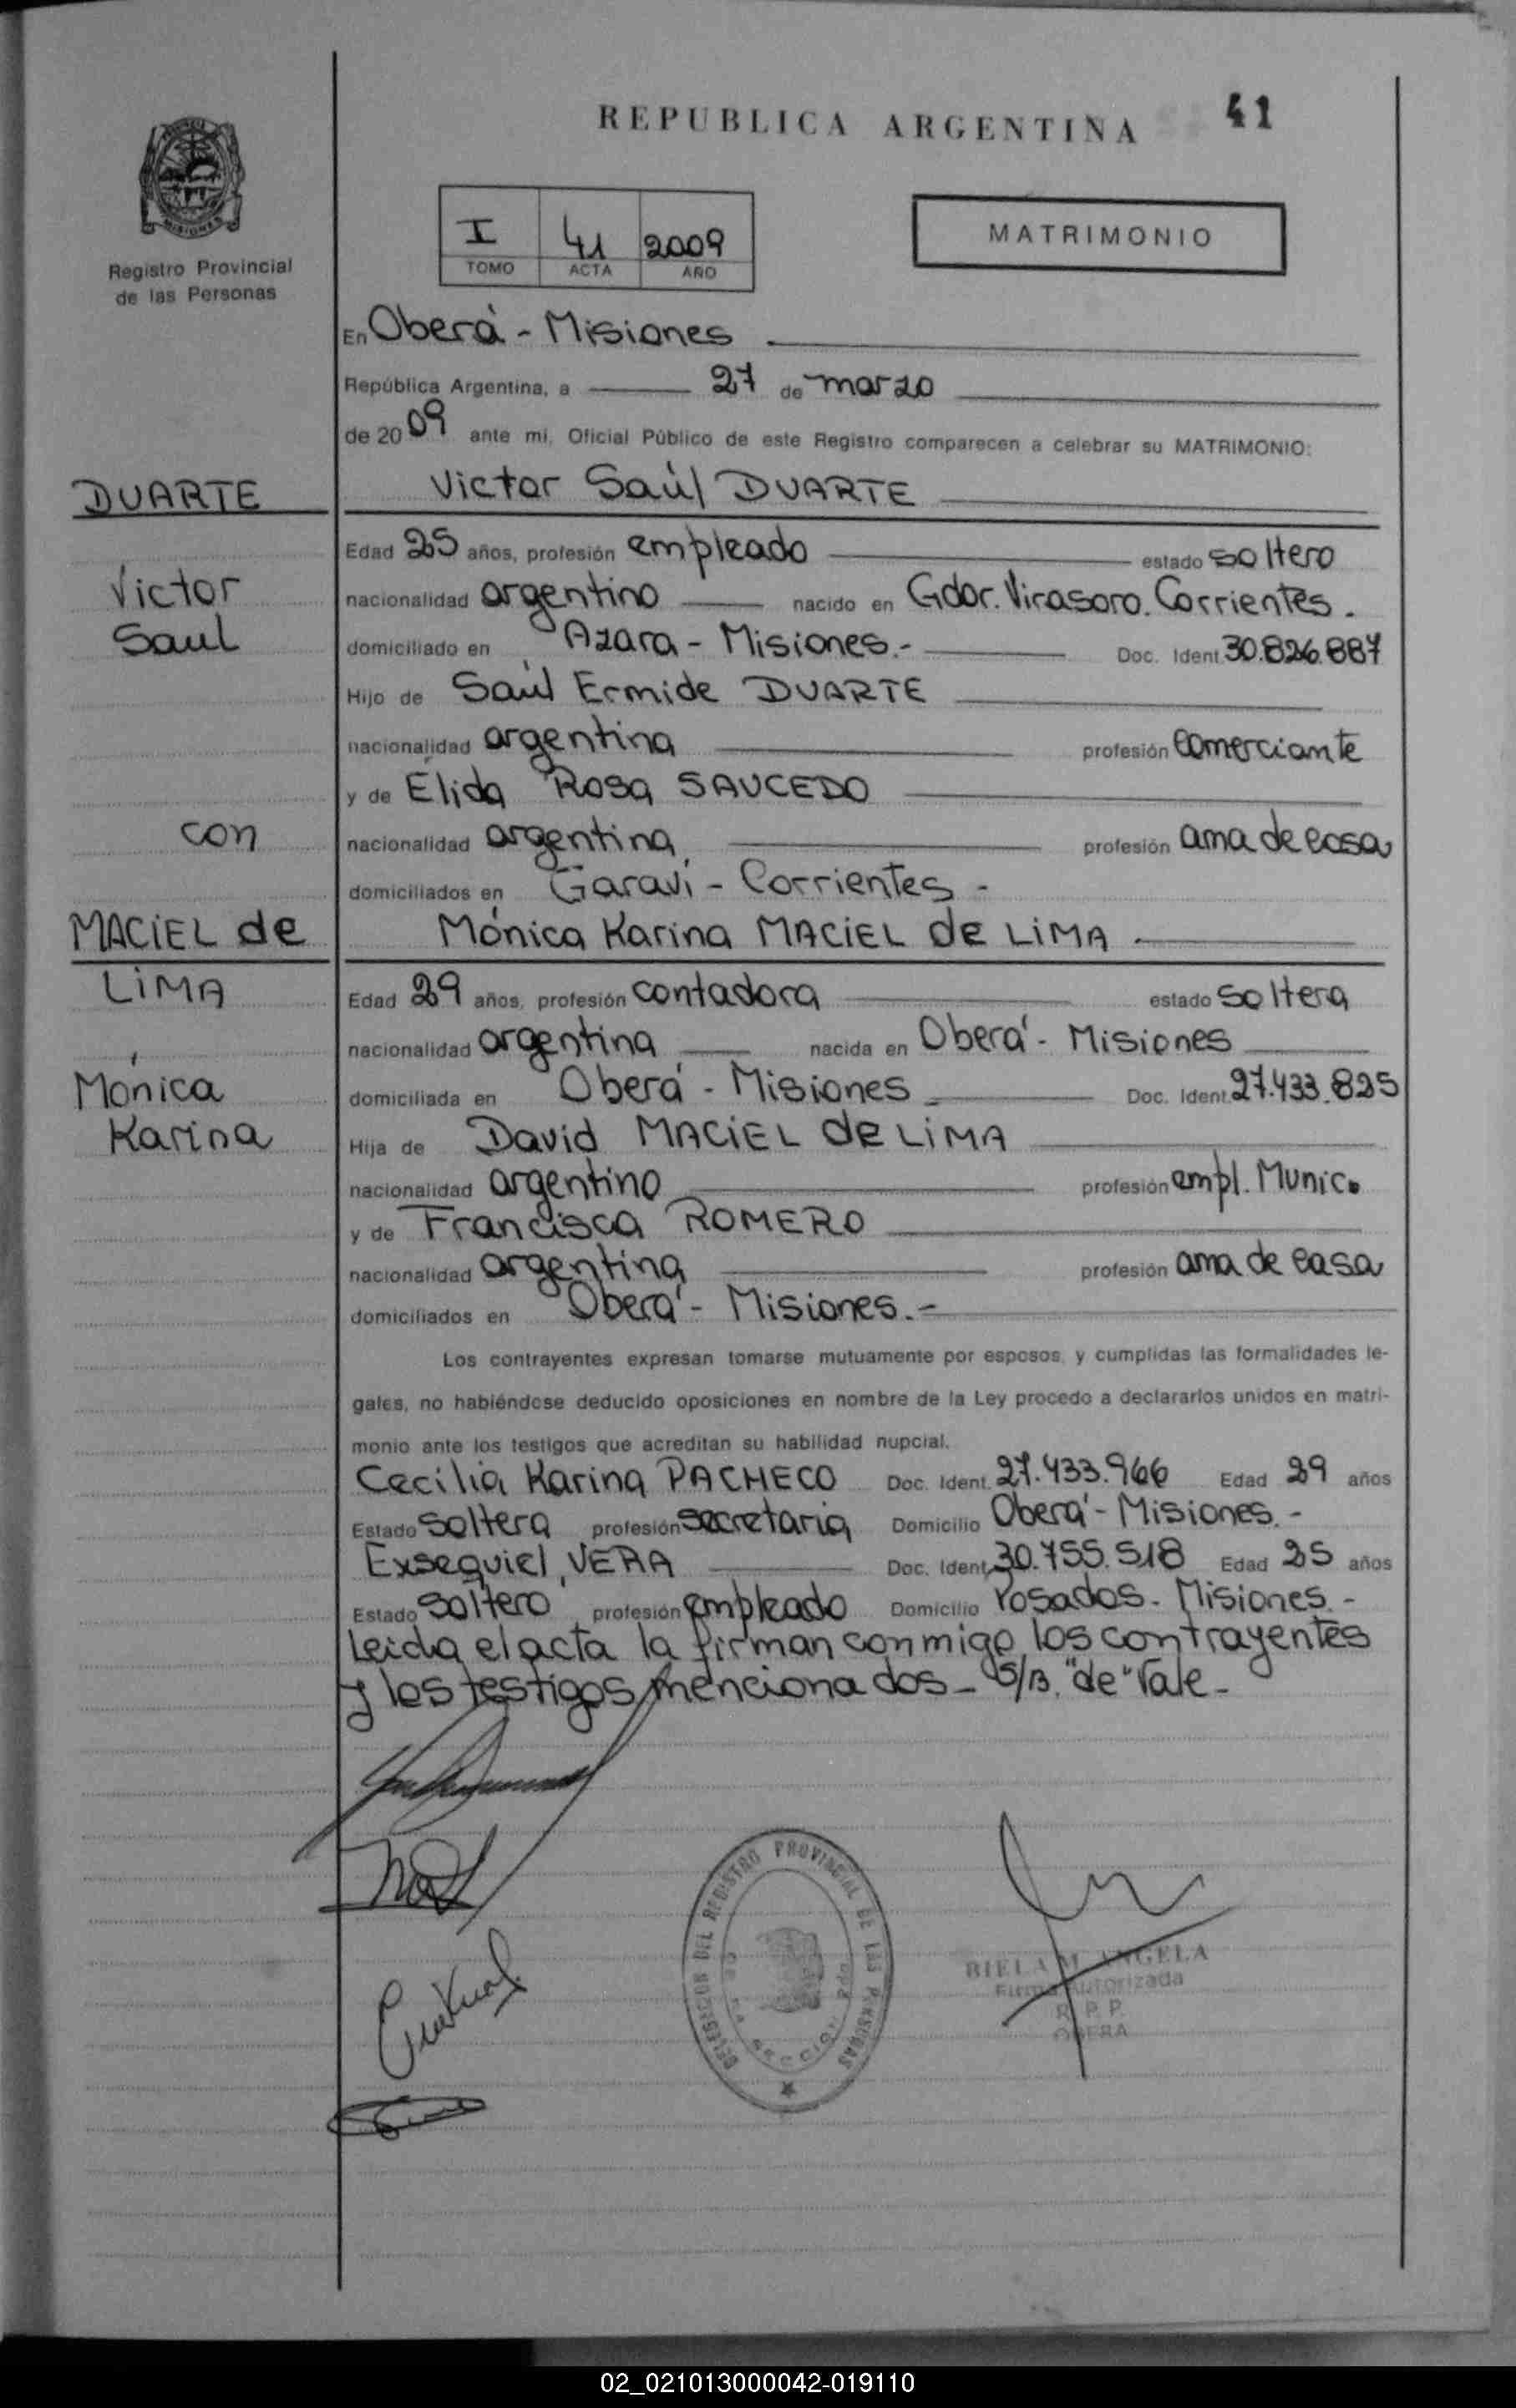 REPUBLICA ARGENTINA 41
MISIONES
Registro Provincial
de las Personas
I 41 2009
TOMO ACTA AÑO
MATRIMONIO
En Oberá - Misiones
República Argentina, a 27 de marzo
de 2009 ante mi, Oficial Público de este Registro comparecen a celebrar su MATRIMONIO:
DUARTE
Victor Saúl DUARTE
Edad 25 años, profesión empleado estado soltero
Victor
nacionalidad argentino nacido en Gdor. Virasoro. Corrientes.
Saul
domiciliado en Azara - Misiones.- Doc. Ident. 30.826.887
Hijo de Saúl Ermide DUARTE
nacionalidad argentina profesión comerciante
y de Elida Rosa SAUCEDO
con
nacionalidad argentina profesión ama de casa
domiciliados en Garavi - Corrientes -
MACIEL de
Mónica Karina MACIEL de LIMA
LIMA
Edad 29 años, profesión contadora estado soltera
nacionalidad argentina nacida en Oberá - Misiones
Mónica
domiciliada en Oberá - Misiones Doc. Ident. 27.433.825
Karina
Hija de David MACIEL de LIMA
nacionalidad argentino profesión empl. Munic.
y de Francisca ROMERO
nacionalidad argentina profesión ama de casa
domiciliados en Oberá - Misiones.-
Los contrayentes expresan tomarse mutuamente por esposos, y cumplidas las formalidades le-
gales, no habiéndose deducido oposiciones en nombre de la Ley procedo a declararlos unidos en matri-
monio ante los testigos que acreditan su habilidad nupcial.
Cecilia Karina PACHECO Doc. Ident. 27.433.966 Edad 29 años
Estado soltera profesión secretaria Domicilio Oberá - Misiones.-
Exsequiel VERA Doc. Ident. 30.755.518 Edad 25 años
Estado soltero profesión empleado Domicilio Posadas - Misiones.-
Leida el acta la firman conmigo los contrayentes
y los testigos mencionados - S/B. "de" Vale -
DELEGACION DEL REGISTRO PROVINCIAL DE LAS PERSONAS
BIELA M. ANGELA
Firma Autorizada
R. P. P.
OBERA
02_021013000042-019110